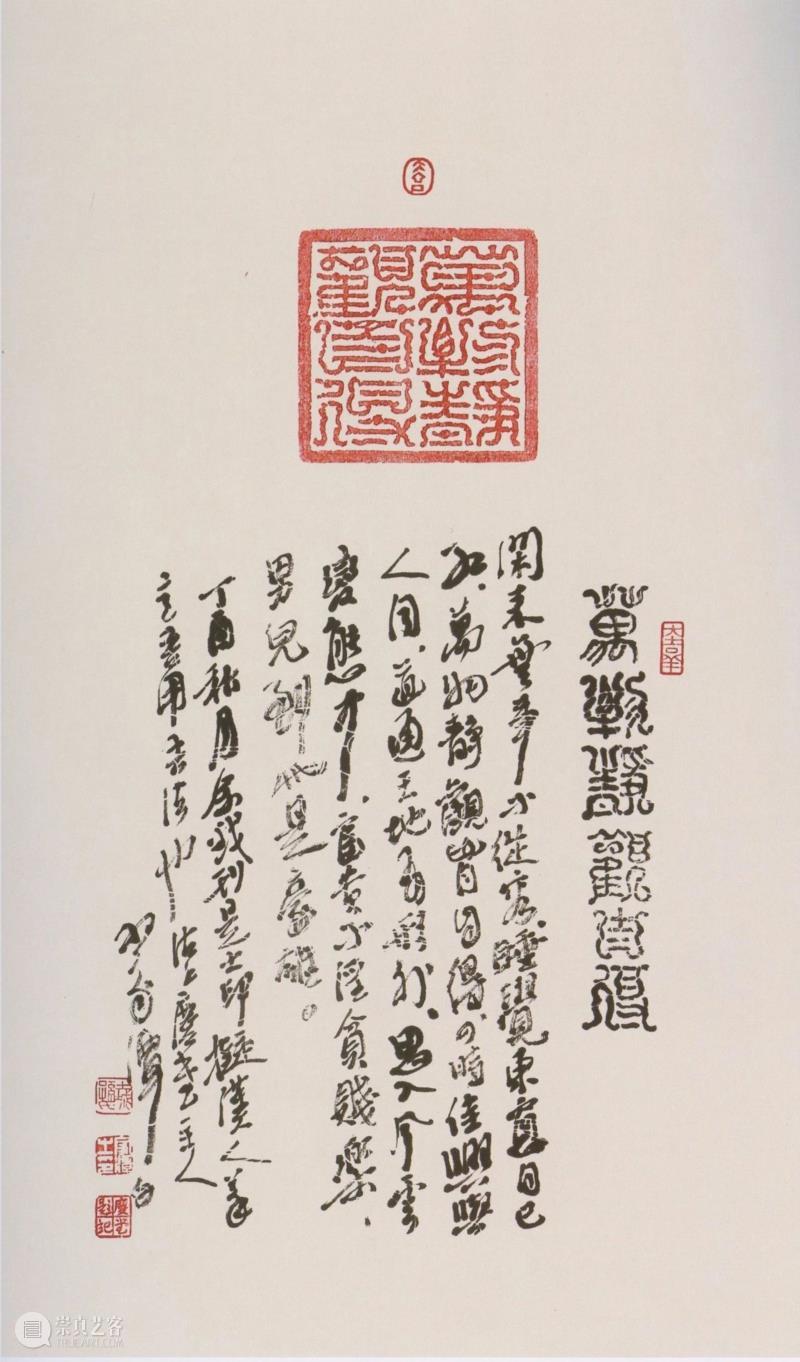 萬物靜觀自得
萬物靜觀自得
閑来無事不從容、睡覺東窗日已
红、萬物靜觀皆自得、四時佳興與
人同、道通天地有形外、思入风雲
變態中、富貴不淫貧賤樂、
男兒到此是豪雄。
丁酉秋月 刻是印擬漢人筆
意 主人
崇真艺客
TRUEART.COM